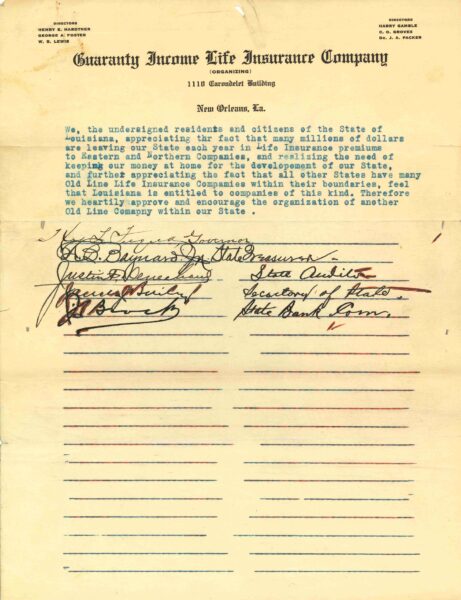 DIRECTORS
HENRY E. HARDTNER
GEORGE A. FOSTER
W. B. LEWIS
DIRECTORS
HARRY GAMBLE
C. O. GROVES
Dr. J. A. PACKER
Guaranty Income Life Insurance Company
(ORGANIZING)
1110 Carondelet Building
New Orleans, La.
We, the undersigned residents and citizens of the State of
Louisiana, appreciating thr fact that many millions of dollars
are leaving our State each year in Life Insurance premiums
to Eastern and Northern Companies, and realizing the need of
keeping our money at home for the developement of our State,
and further appreciating the fact that all other States have many
Old Line Life Insurance Companies within their boundaries, feel
that Louisiana is entitled to companies of this kind. Therefore
we heartily approve and encourage the organization of another
Old Line Comapny within our State .
Governor
H. B. Baynard Jr. State Treasurer
State Auditor
Secretary of State.
State Bank Com.